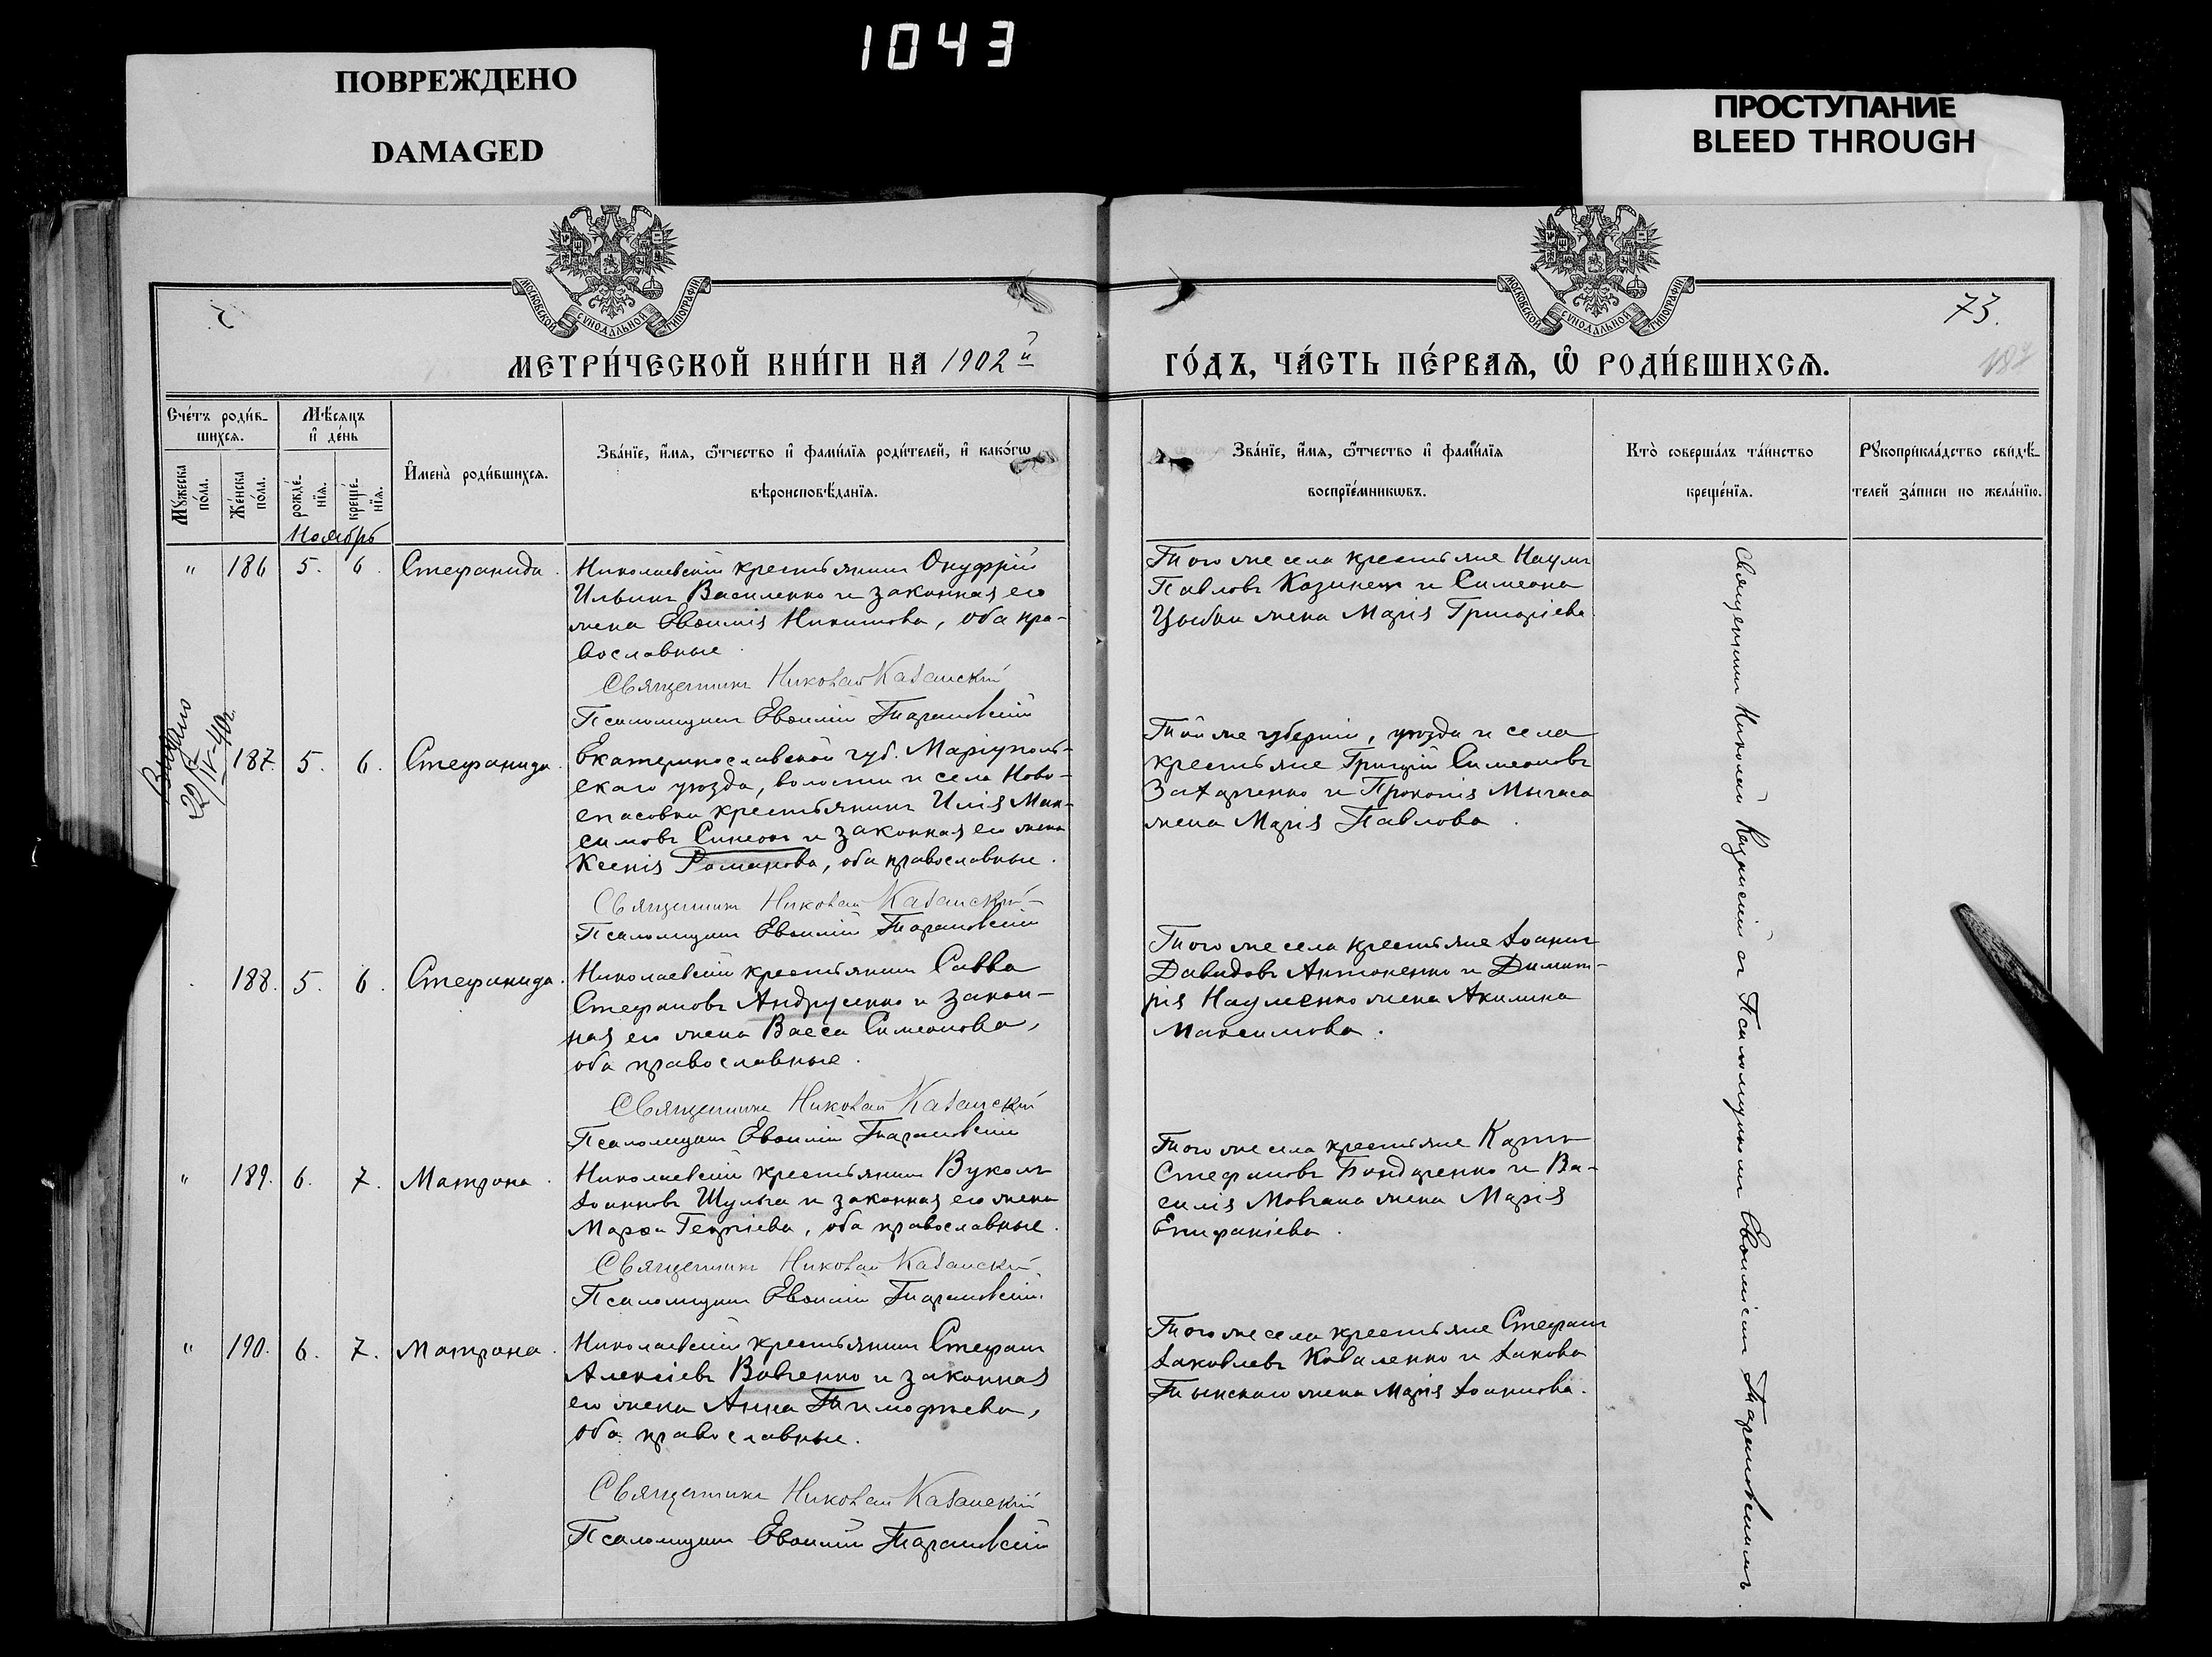 1043
ПОВРЕЖДЕНО
DAMAGED
ПРОСТУПАНИЕ
BLEED THROUGH
МОСКОВСКОЙ СѴНОДАЛЬНОЙ ТИПОГРАФІИ
МОСКОВСКОЙ СѴНОДАЛЬНОЙ ТИПОГРАФІИ
73.
МЕТРИ́ЧЕСКОЙ КНИ́ГИ НА 1902й
ГО́ДЪ, ЧА́СТЬ ПЕ́РВАѦ, Ѡ҆ РОДИ́ВШИХСѦ.
Сче́тъ роди́в-
шихсѧ.
Мѣ́сѧцъ
и҆ де́нь
Мꙋ́жеска по́ла.
Же́нска по́ла.
рожде́-
нїѧ.
креще́-
нїѧ.
И҆мена̀ роди́вшихсѧ.
Зва́нїе, и҆́мѧ, ѻ҆́тчество и҆ фами́лїѧ роди́телей, и҆ како́гѡ
вѣроисповѣ́данїѧ.
Зва́нїе, и҆́мѧ, ѻ҆́тчество и҆ фами́лїѧ
воспрїе́мникѡвъ.
Кто̀ соверша́лъ та́инство
креще́нїѧ.
Рꙋкоприкла́дство свидѣ́-
телей за́писи по жела́нїю.
Ноябрь
" 186 5. 6. Стефанида.
Николаевскій крестьянинъ Онуфрій
Ильинъ Василенко и законная его
жена Евѳимія Никитова, оба пра-
вославные.
Священникъ Николай Казанскій
Псаломщикъ Евѳимій Тарановскій
Того же села крестьяне Наумъ
Павловъ Казинецъ и Симеона
Цыбки жена Марія Григоріева
187. 5. 6. Стефанида.
Екатеринославской губ. Маріуполь-
скаго уѣзда, волости и села Ново-
спасовки крестьянинъ Илія Мак-
симовъ Симонъ и законная его жена
Ксенія Романова, оба православные.
Священникъ Николай Казанскій
Псаломщикъ Евѳимій Тарановскій
Той же губерніи, уѣзда и села
крестьяне Григорій Симеоновъ
Захарченко и Прокопія Мычаса
жена Марія Павлова.
188. 5. 6. Стефанида.
Николаевскій крестьянинъ Савва
Стефановъ Андрусенко и закон-
ная его жена Васса Симеонова,
оба православные.
Священникъ Николай Казанскій
Псаломщикъ Евѳимій Тарановскій
Того же села крестьяне Іоаннъ
Давидовъ Антоненко и Димит-
рія Науменко жена Акилина
Максимова.
" 189. 6. 7. Матрона.
Николаевскій крестьянинъ Вуколъ
Іоанновъ Шульга и законная его жена
Марѳа Георгіева, оба православные.
Священникъ Николай Казанскій
Псаломщикъ Евѳимій Тарановскій.
Того же села крестьяне Карпъ
Стефановъ Бондаренко и Ва-
силія Мовчана жена Марія
Епифаніева.
" 190. 6. 7. Матрона.
Николаевскій крестьянинъ Стефанъ
Алексіевъ Вовченко и законная
его жена Анна Тимофѣева,
оба православные.
Священникъ Николай Казанскій
Псаломщикъ Евѳимій Тарановскій
Того же села крестьяне Стефанъ
Іаковлевъ Коваленко и Іакова
Тынскаго жена Марія Іоаннова.
Священникъ Николай Казанскій съ Псаломщикомъ Евѳиміемъ Тарановскимъ.